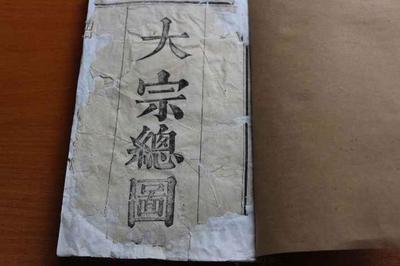 大宗總圖